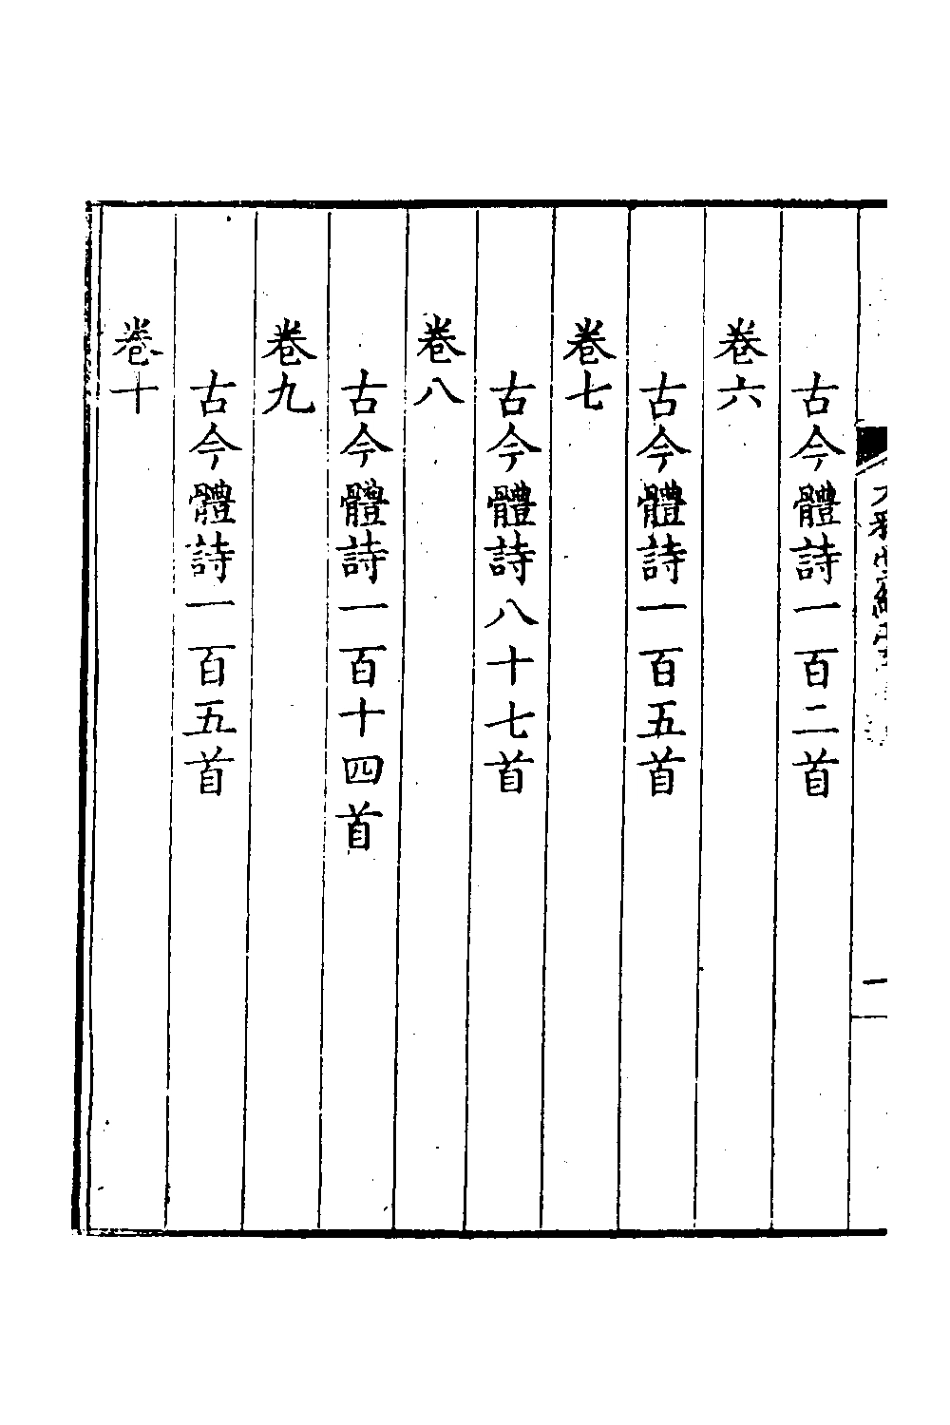 古今體詩一百二首
卷六
古今體詩一百五首
卷七
古今體詩八十七首
卷八
古今體詩一百十四首
卷九
古今體詩一百五首
卷十
一